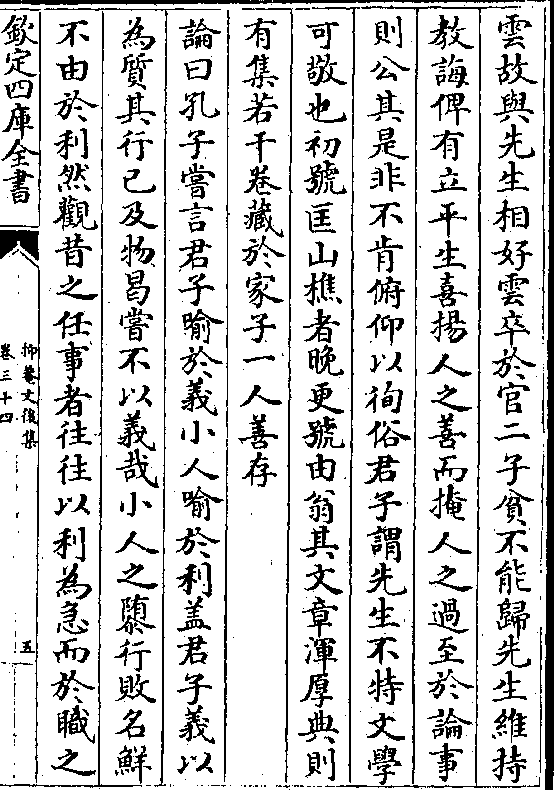 雲故與先生相好雲卒於官二子貧不能歸先生維持
教誨俾有立平生喜揚人之善而掩人之過至於論事
則公其是非不肯俯仰以徇俗君子謂先生不特文學
可敬也初號匡山樵者晚更號由翁其文章渾厚典則
有集若干卷藏於家子一人善存
論曰孔子嘗言君子喻於義小人喻於利盖君子義以
為質其行已及物曷嘗不以義哉小人之隳行敗名鮮
不由於利然觀昔之任事者往往以利為急而於職之
欽定四庫全書
抑菴文後集
卷三十四
五